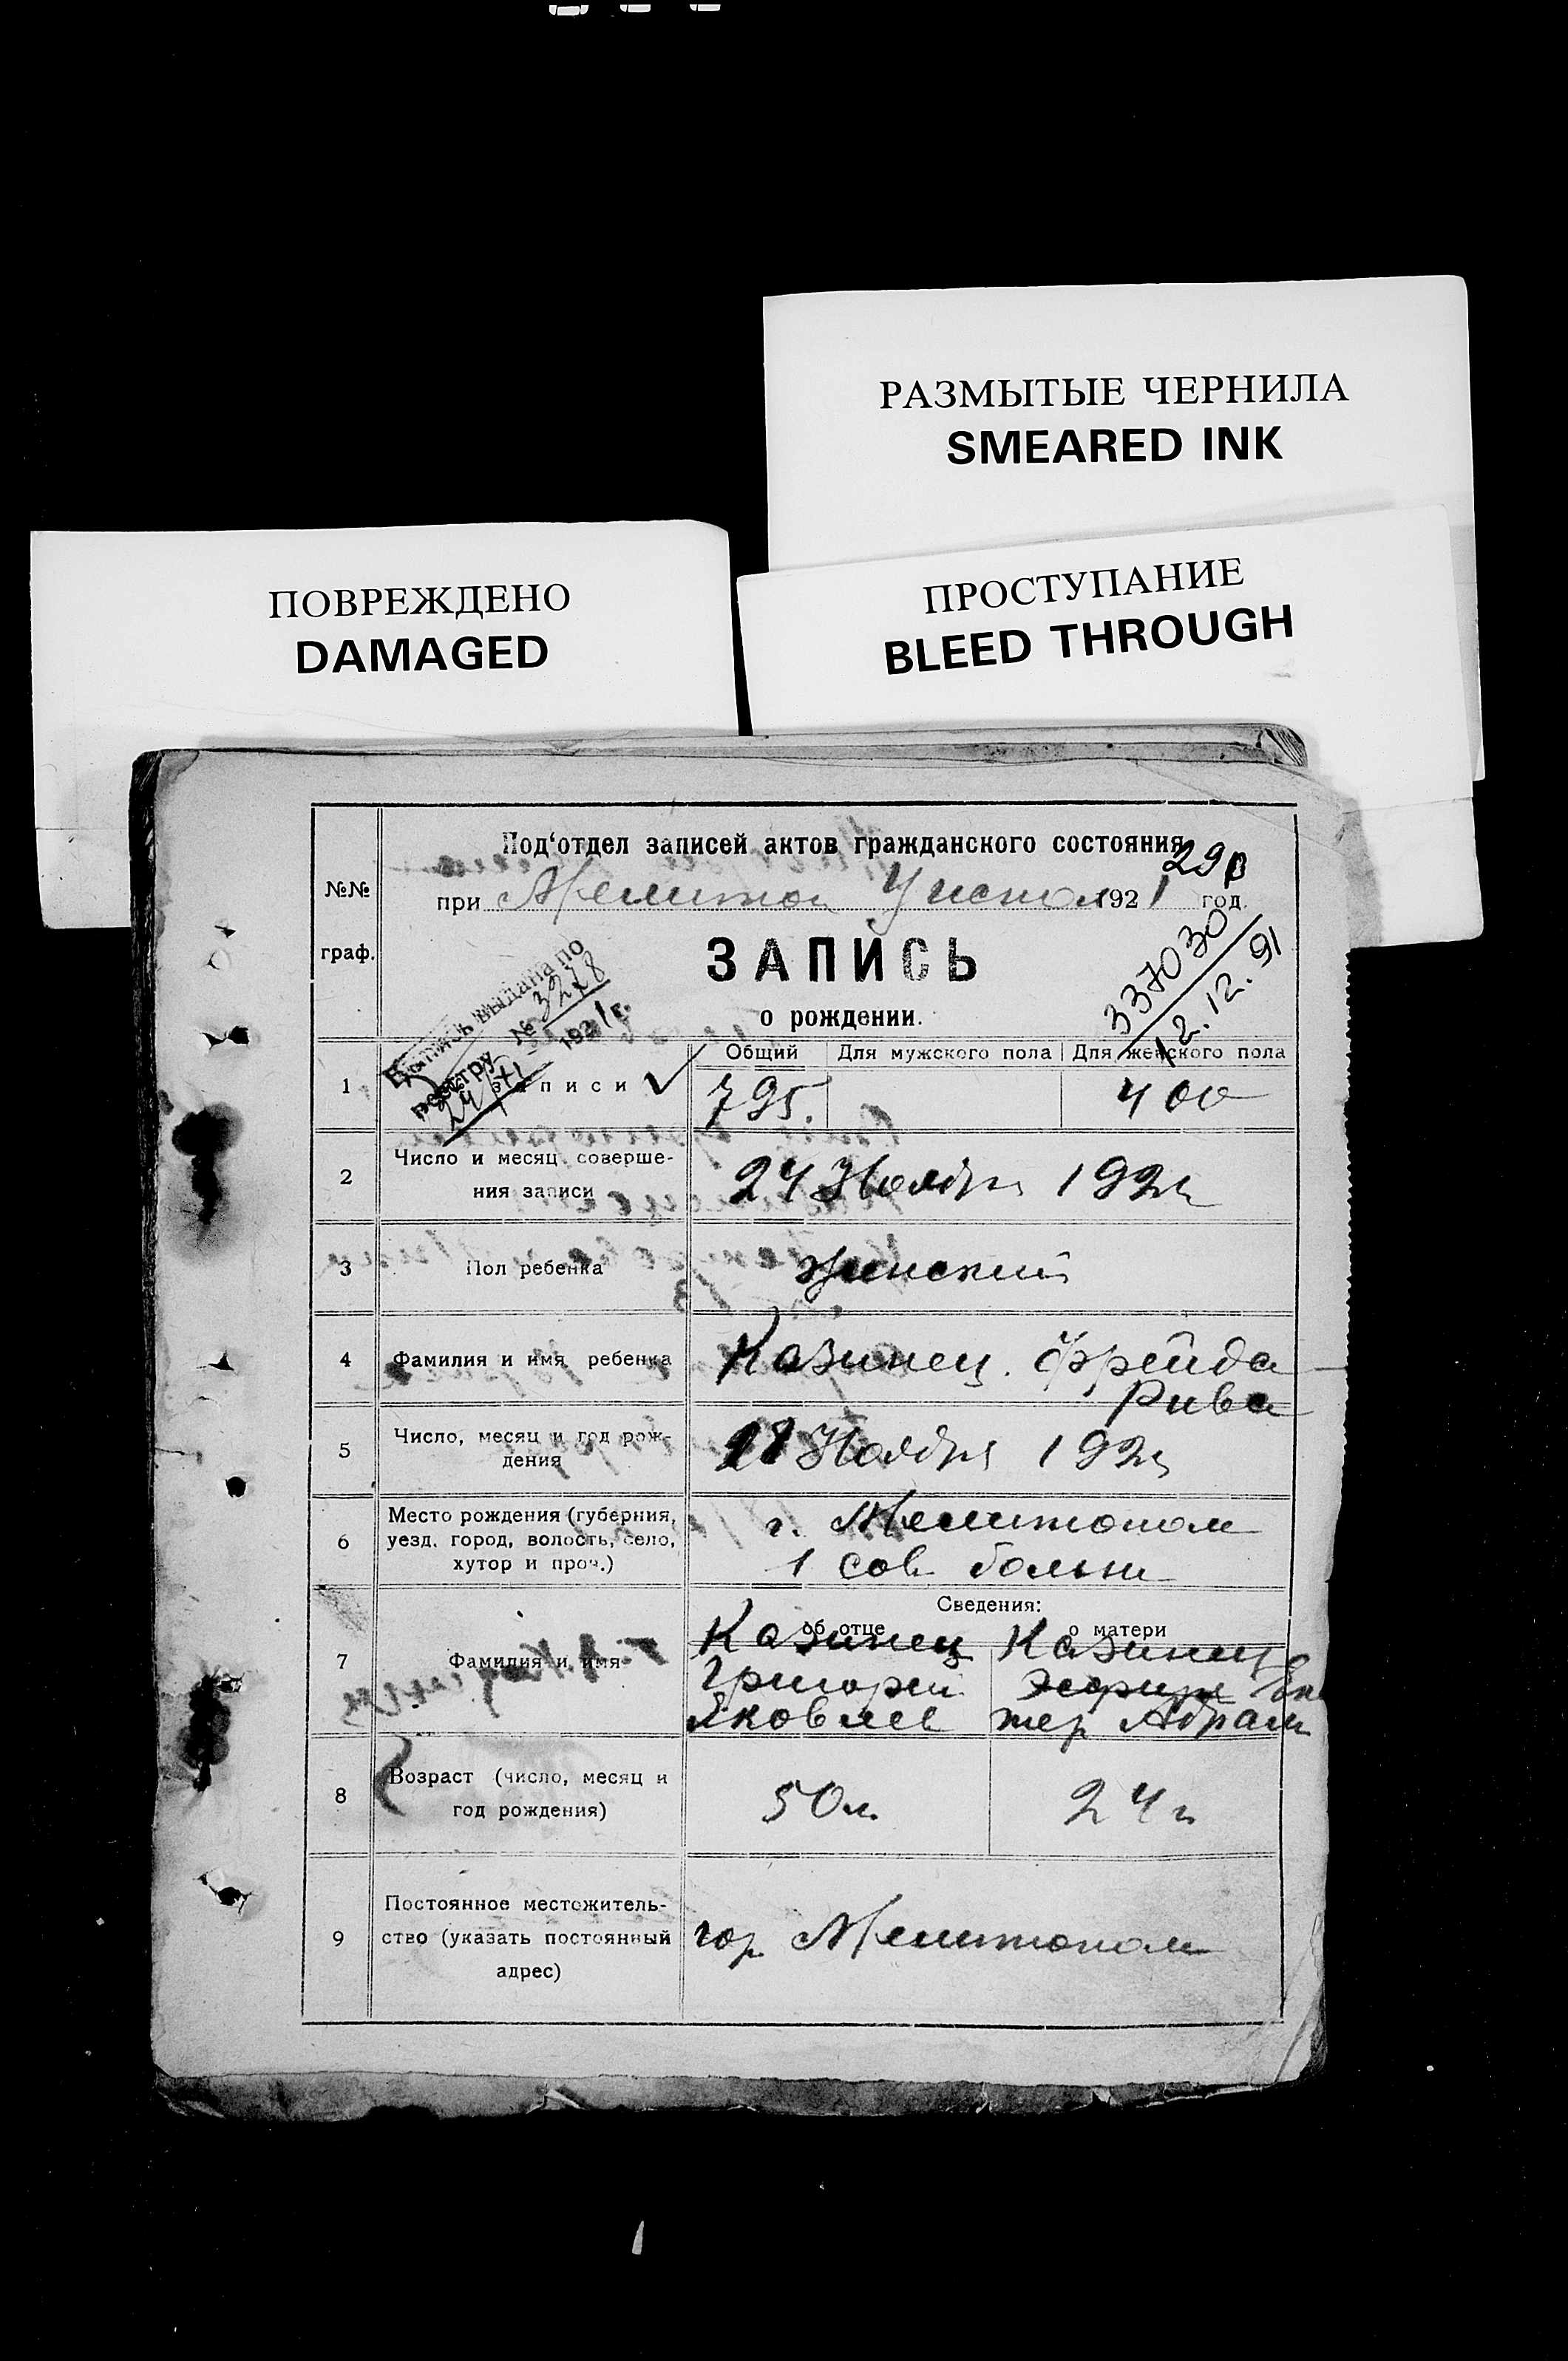 РАЗМЫТЫЕ ЧЕРНИЛА
SMEARED INK
ПРОСТУПАНИЕ
BLEED THROUGH
ПОВРЕЖДЕНО
DAMAGED
№№
граф.
Под‘отдел записей актов гражданского состояния
при Мелитоп Уисполк 1921 год.
ЗАПИСЬ
о рождении.
337030
12.12.91
выдана по
реестру № 3278
24/XI 1921 г.
Общий Для мужского пола Для женского пола
1 записи 795. 400
2 Число и месяц соверше-
ния записи
24 Ноября 1921
3 Пол ребенка женский
4 Фамилия и имя ребенка Казинец Фрейда
Рива
5 Число, месяц и год рож-
дения
18 Ноября 1921
6 Место рождения (губерния,
уезд, город, волость, село,
хутор и проч.)
г. Мелитополь
1 сов больн
Сведения:
об отце о матери
7 Фамилия и имя
Казинец Казинец
Григорий Эсфирь Ек
Яковлев тер Абрам
8 Возраст (число, месяц и
год рождения)
50 л. 24 г
9 Постоянное местожитель-
ство (указать постоянный
адрес)
гор Мелитополь